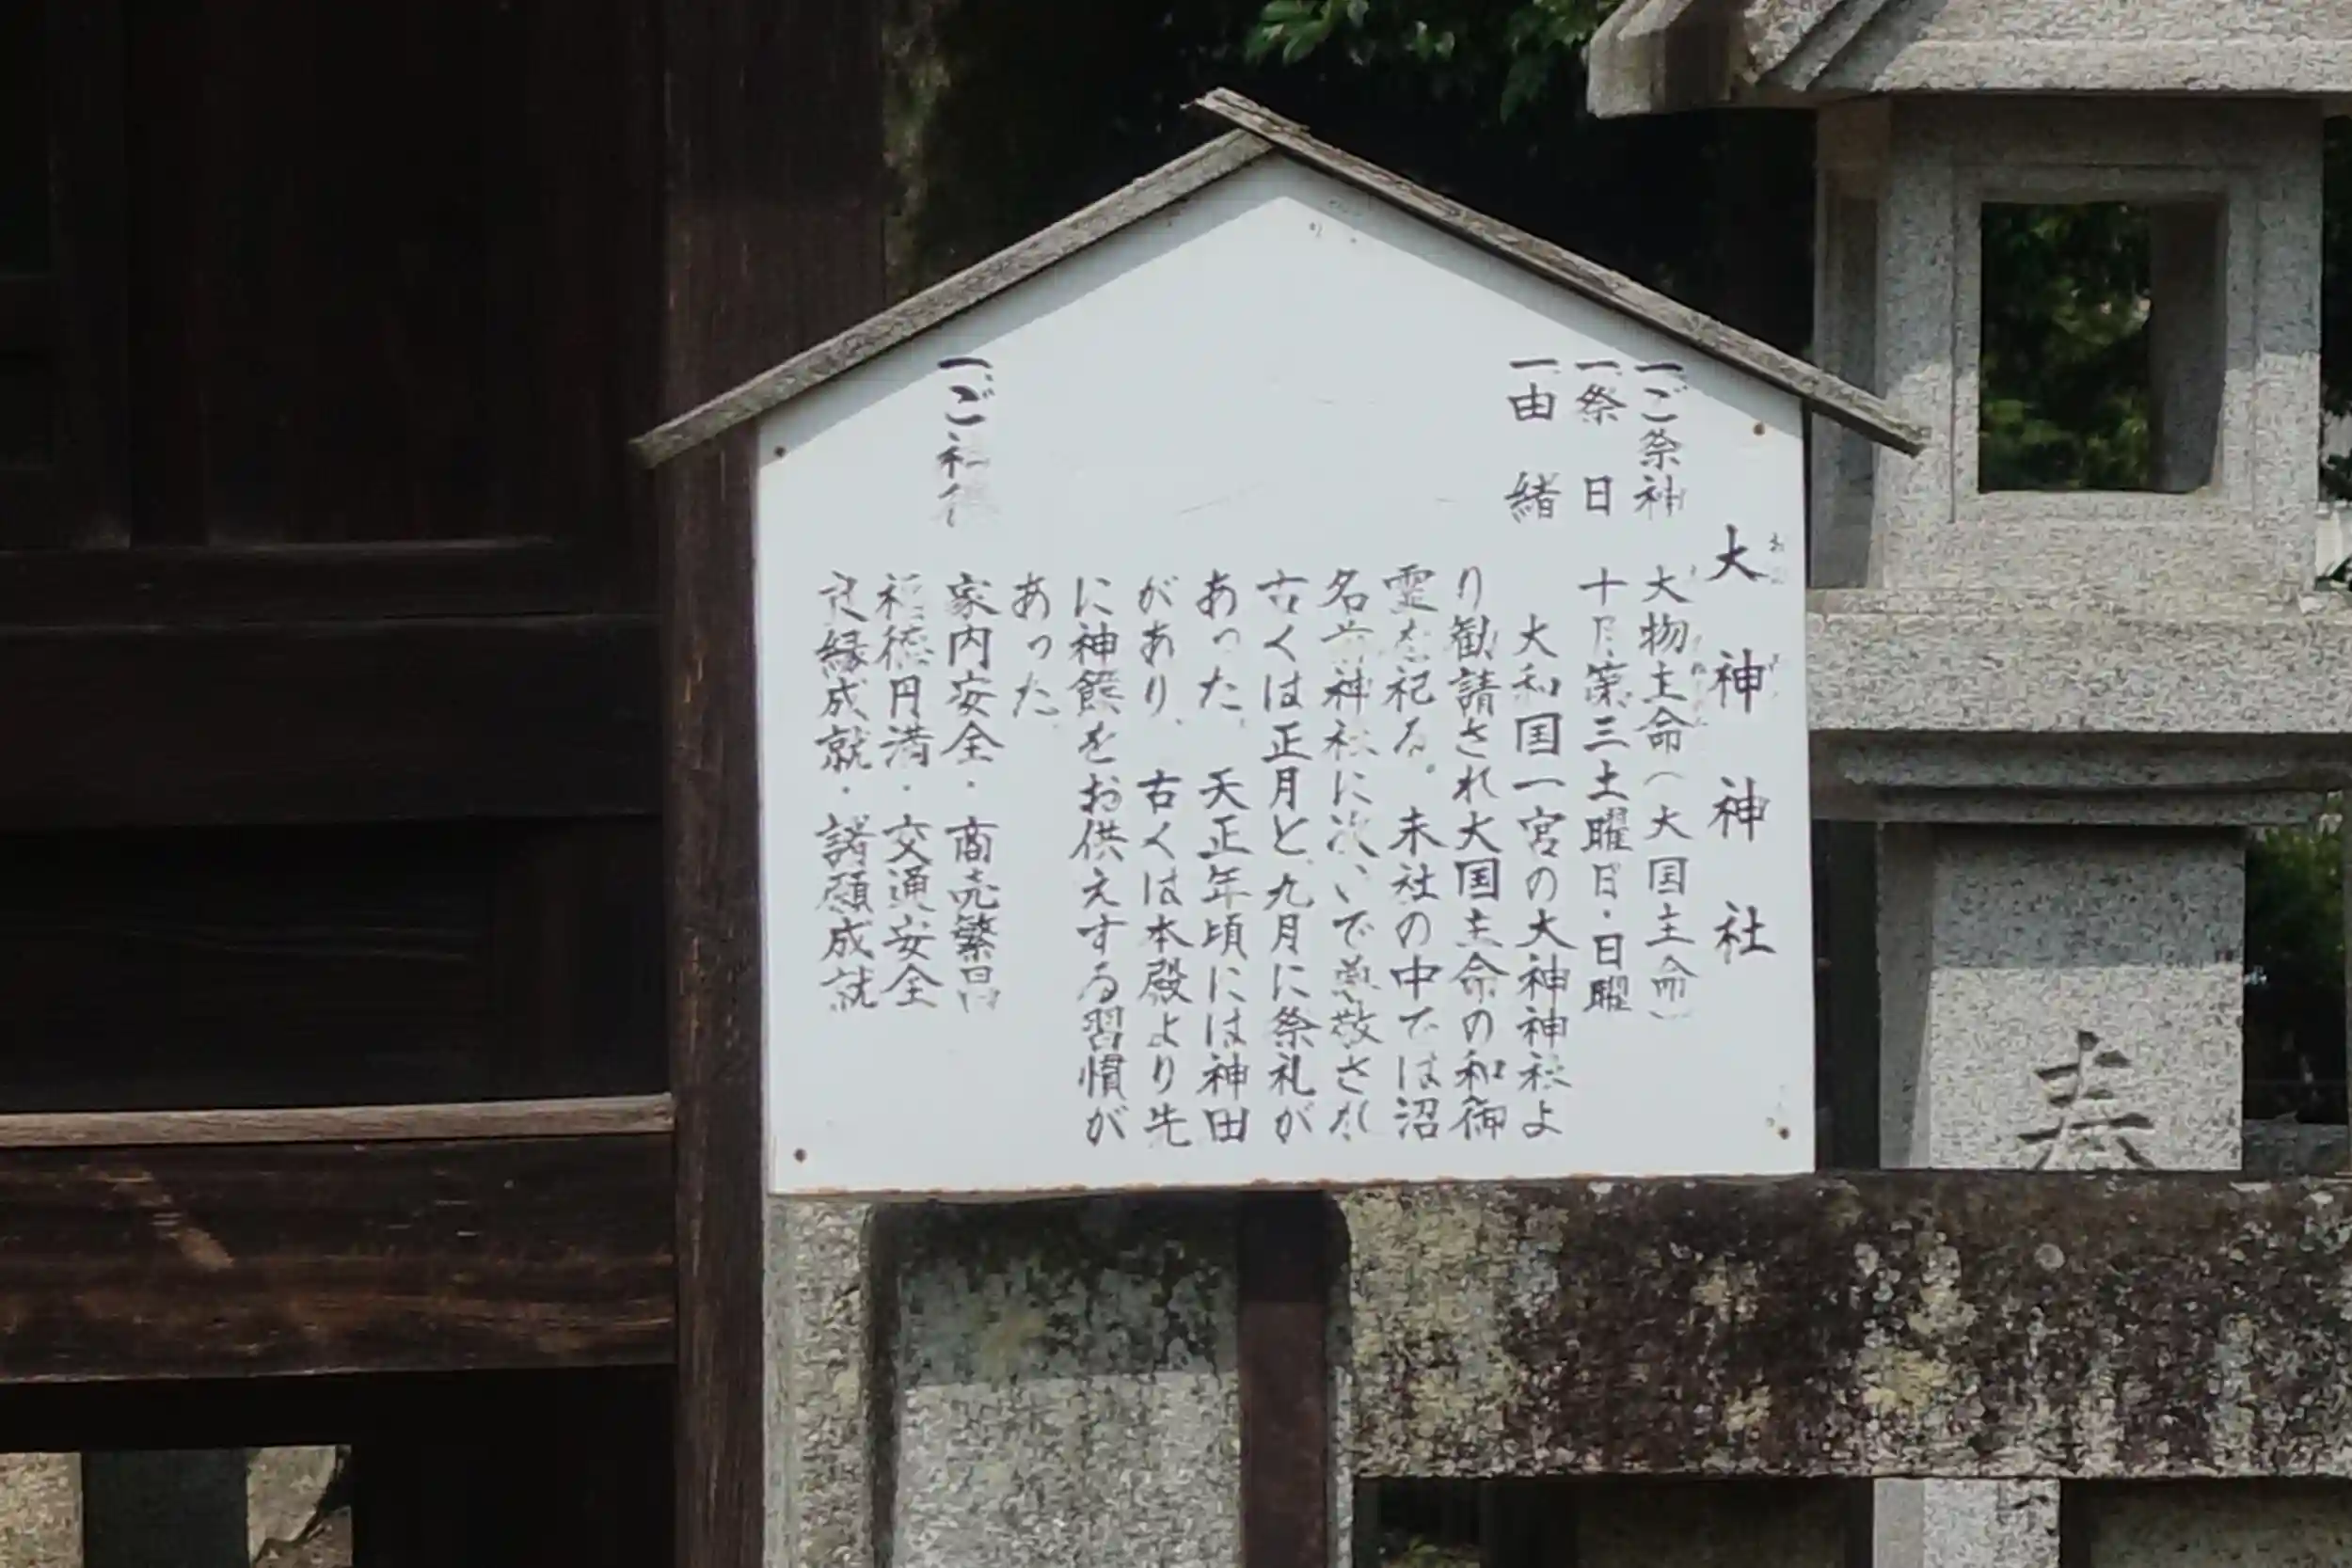 大神神社
一、ご祭神 大物主命(大国主命)
一、祭日 十月第三土曜日・日曜
一、由緒 大和国一宮の大神神社よ
り勧請され大国主命の和御
霊を祀る。末社の中では沼
名前神社に次いで崇敬され
古くは正月と、九月に祭礼が
あった。天正年頃には神田
があり、古くは本殿より先
に神饌をお供えする習慣が
あった
一、ご社徳 家内安全・商売繁昌
福徳円満・交通安全
良縁成就・諸願成就
奉